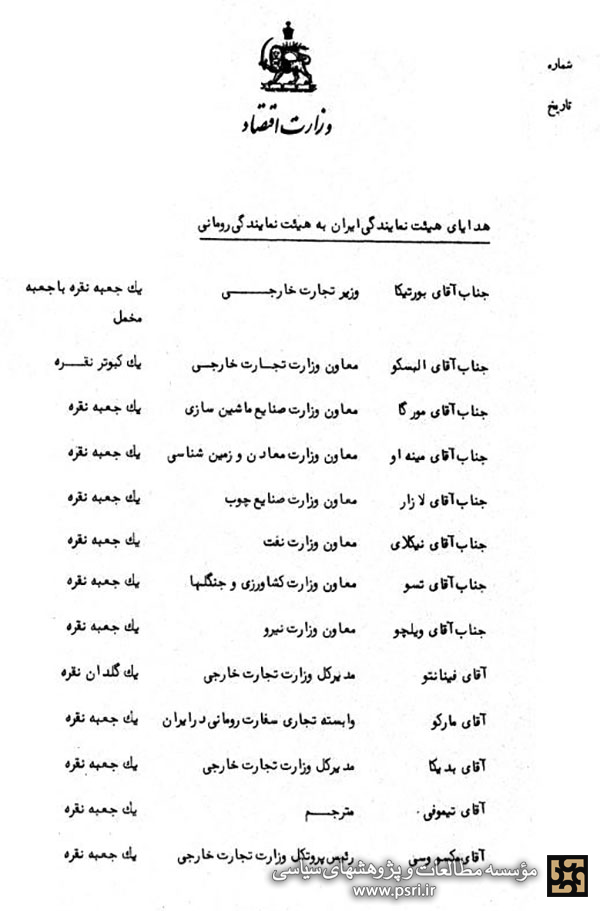 شماره
تاریخ
وزارت اقتصاد
هدایای هیئت نمایندگی ایران به هیئت نمایندگی رومانی
جناب آقای بورتیکا وزیر تجارت خارجی یك جعبه نقره با جعبه
مخمل
جناب آقای الیسکو معاون وزارت تجارت خارجی یك کبوتر نقره
جناب آقای مورگا معاون وزارت صنایع ماشین سازی یك جعبه نقره
جناب آقای مینه او معاون وزارت معادن و زمین شناسی یك جعبه نقره
جناب آقای لازار معاون وزارت صنایع چوب یك جعبه نقره
جناب آقای نیکلای معاون وزارت نفت یك جعبه نقره
جناب آقای تسو معاون وزارت کشاورزی و جنگلها یك جعبه نقره
جناب آقای ویلچو معاون وزارت نیرو یك جعبه نقره
آقای فینانتو مدیرکل وزارت تجارت خارجی یك گلدان نقره
آقای مارکو وابسته تجاری سفارت رومانی در ایران یك جعبه نقره
آقای بدیکا مدیرکل وزارت تجارت خارجی یك جعبه نقره
آقای تیموفی مترجم یك جعبه نقره
آقای رئیس پروتکل وزارت تجارت خارجی یك جعبه نقره
مؤسسه مطالعات و پژوهشهای سیاسی
www.psri.ir